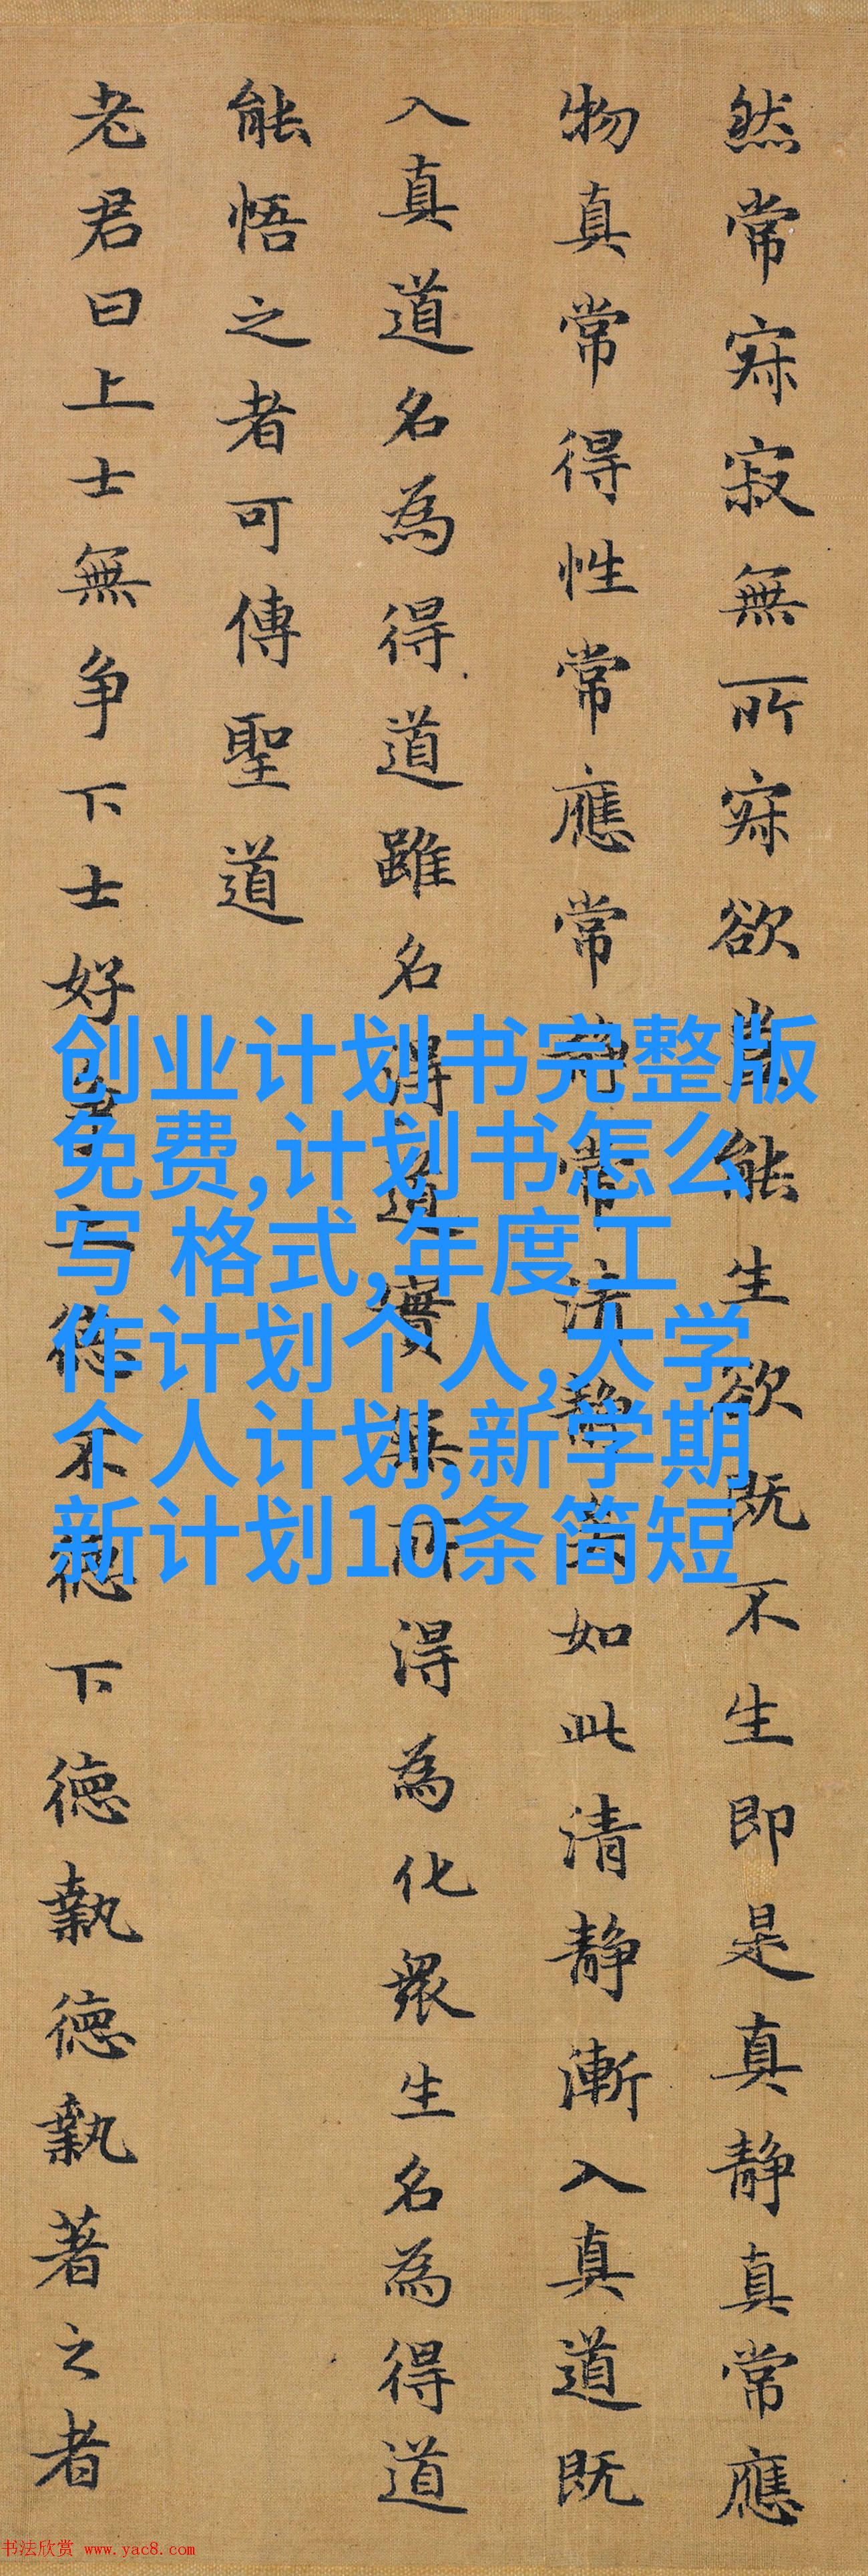 然常寂寂無所寂欲豈能生欲既不生即是真静真常應
物真常得性常應常静常清静矣如此清静漸入真道既
入真道名為得道雖名得道實無所得為化衆生名為得道
能悟之者可傳聖道
老君曰上士無争下士好争上德不德下德執德執著之者
创业计划书完整版
免费,计划书怎么
写 格式,年度工
作计划个人,大学
个人计划,新学期
新计划10条简短
书法欣赏 www.yac8.com